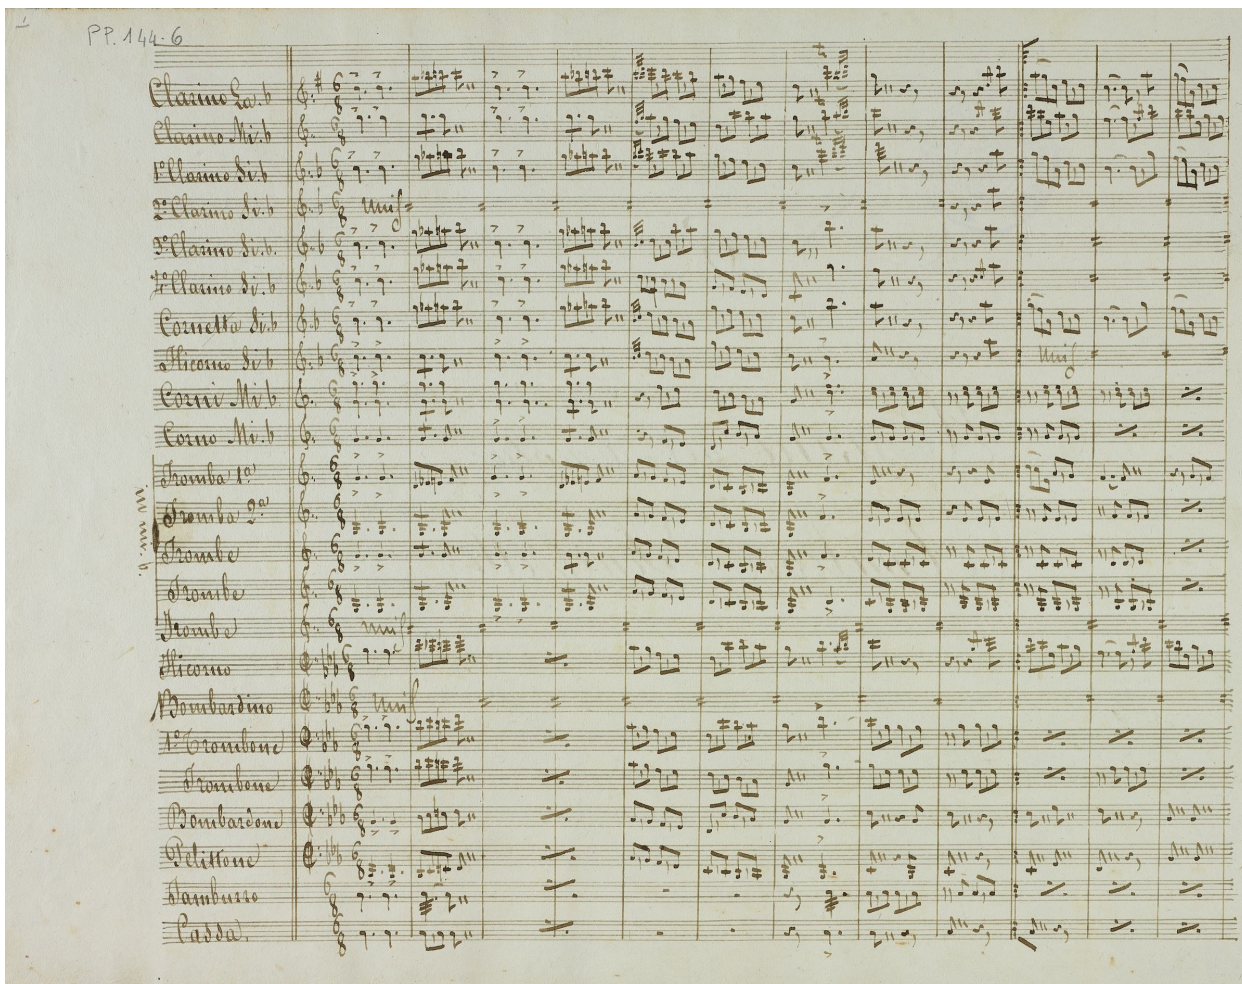 1
PP. 144-6
Clarino La.b
Clarino Mi.b
1º Clarino Si.b
2º Clarino Si.b Unis
3º Clarino Si.b.
4º Clarino Si.b
Cornetta Si.b
Flicorno Si.b Unis
Corni Mi.b
Corno Mi.b
Tromba 1ª
in mi.b.
Tromba 2ª
Trombe
Trombe
Trombe Unis
Flicorno
Bombardino Unis
1º Trombone
Trombone
Bombardone
Pelittone
Tamburro
Cassa.